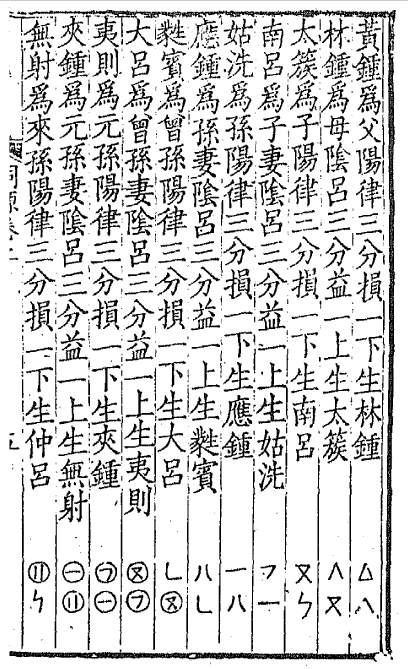 黃鍾爲父陽律三分損一下生林鍾 △ ㄟ
林鍾爲母隂呂三分益一上生太簇 ㄟ ㄡ
太簇爲子陽律三分損一下生南呂 ㄡ ㄣ
南呂爲子妻隂呂三分益一上生姑洗 フ 一
姑洗爲孫陽律三分損一下生應鍾 一 八
應鍾爲孫妻隂呂三分益一上生蕤賓 八 ㄥ
蕤賓爲曾孫陽律三分損一下生大呂 ㄥ
大呂爲曾孫妻隂呂三分益一上生夷則
夷則爲元孫陽律三分損一下生夾鍾 ㊀
夾鍾爲元孫妻隂呂三分益一上生無射 ㊀
無射爲來孫陽律三分損一下生仲呂 ㄣ
詞源卷上 五